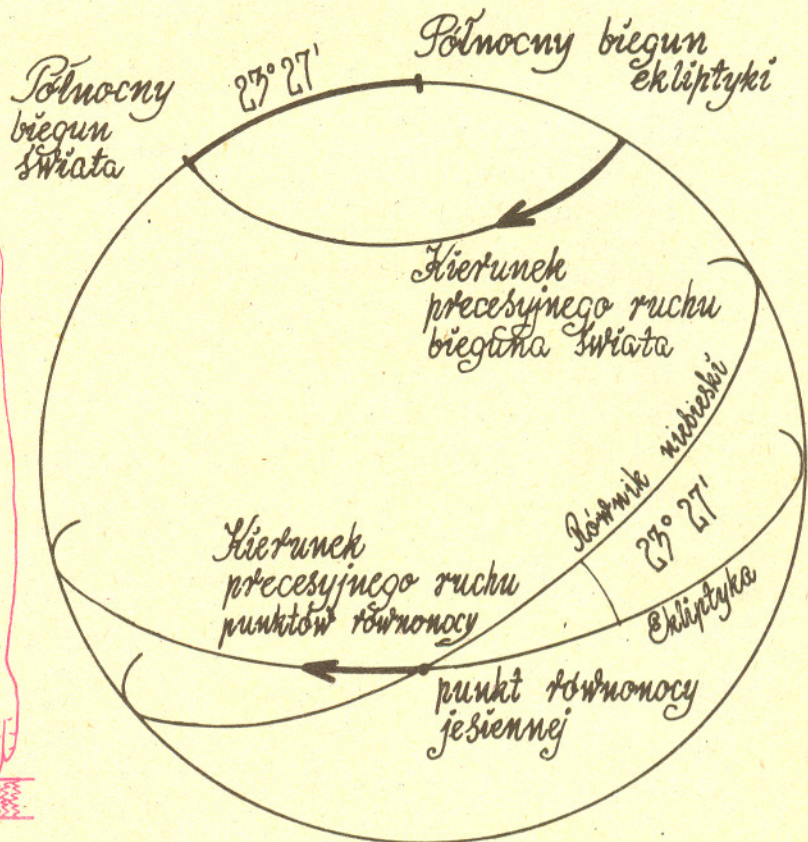 Północny biegun
ekliptyki
23° 27'
Północny
biegun
świata
Kierunek
precesyjnego ruchu
bieguna świata
Równik niebieski
23° 27'
Ekliptyka
Kierunek
precesyjnego ruchu
punktów równonocy
punkt równonocy
jesiennej